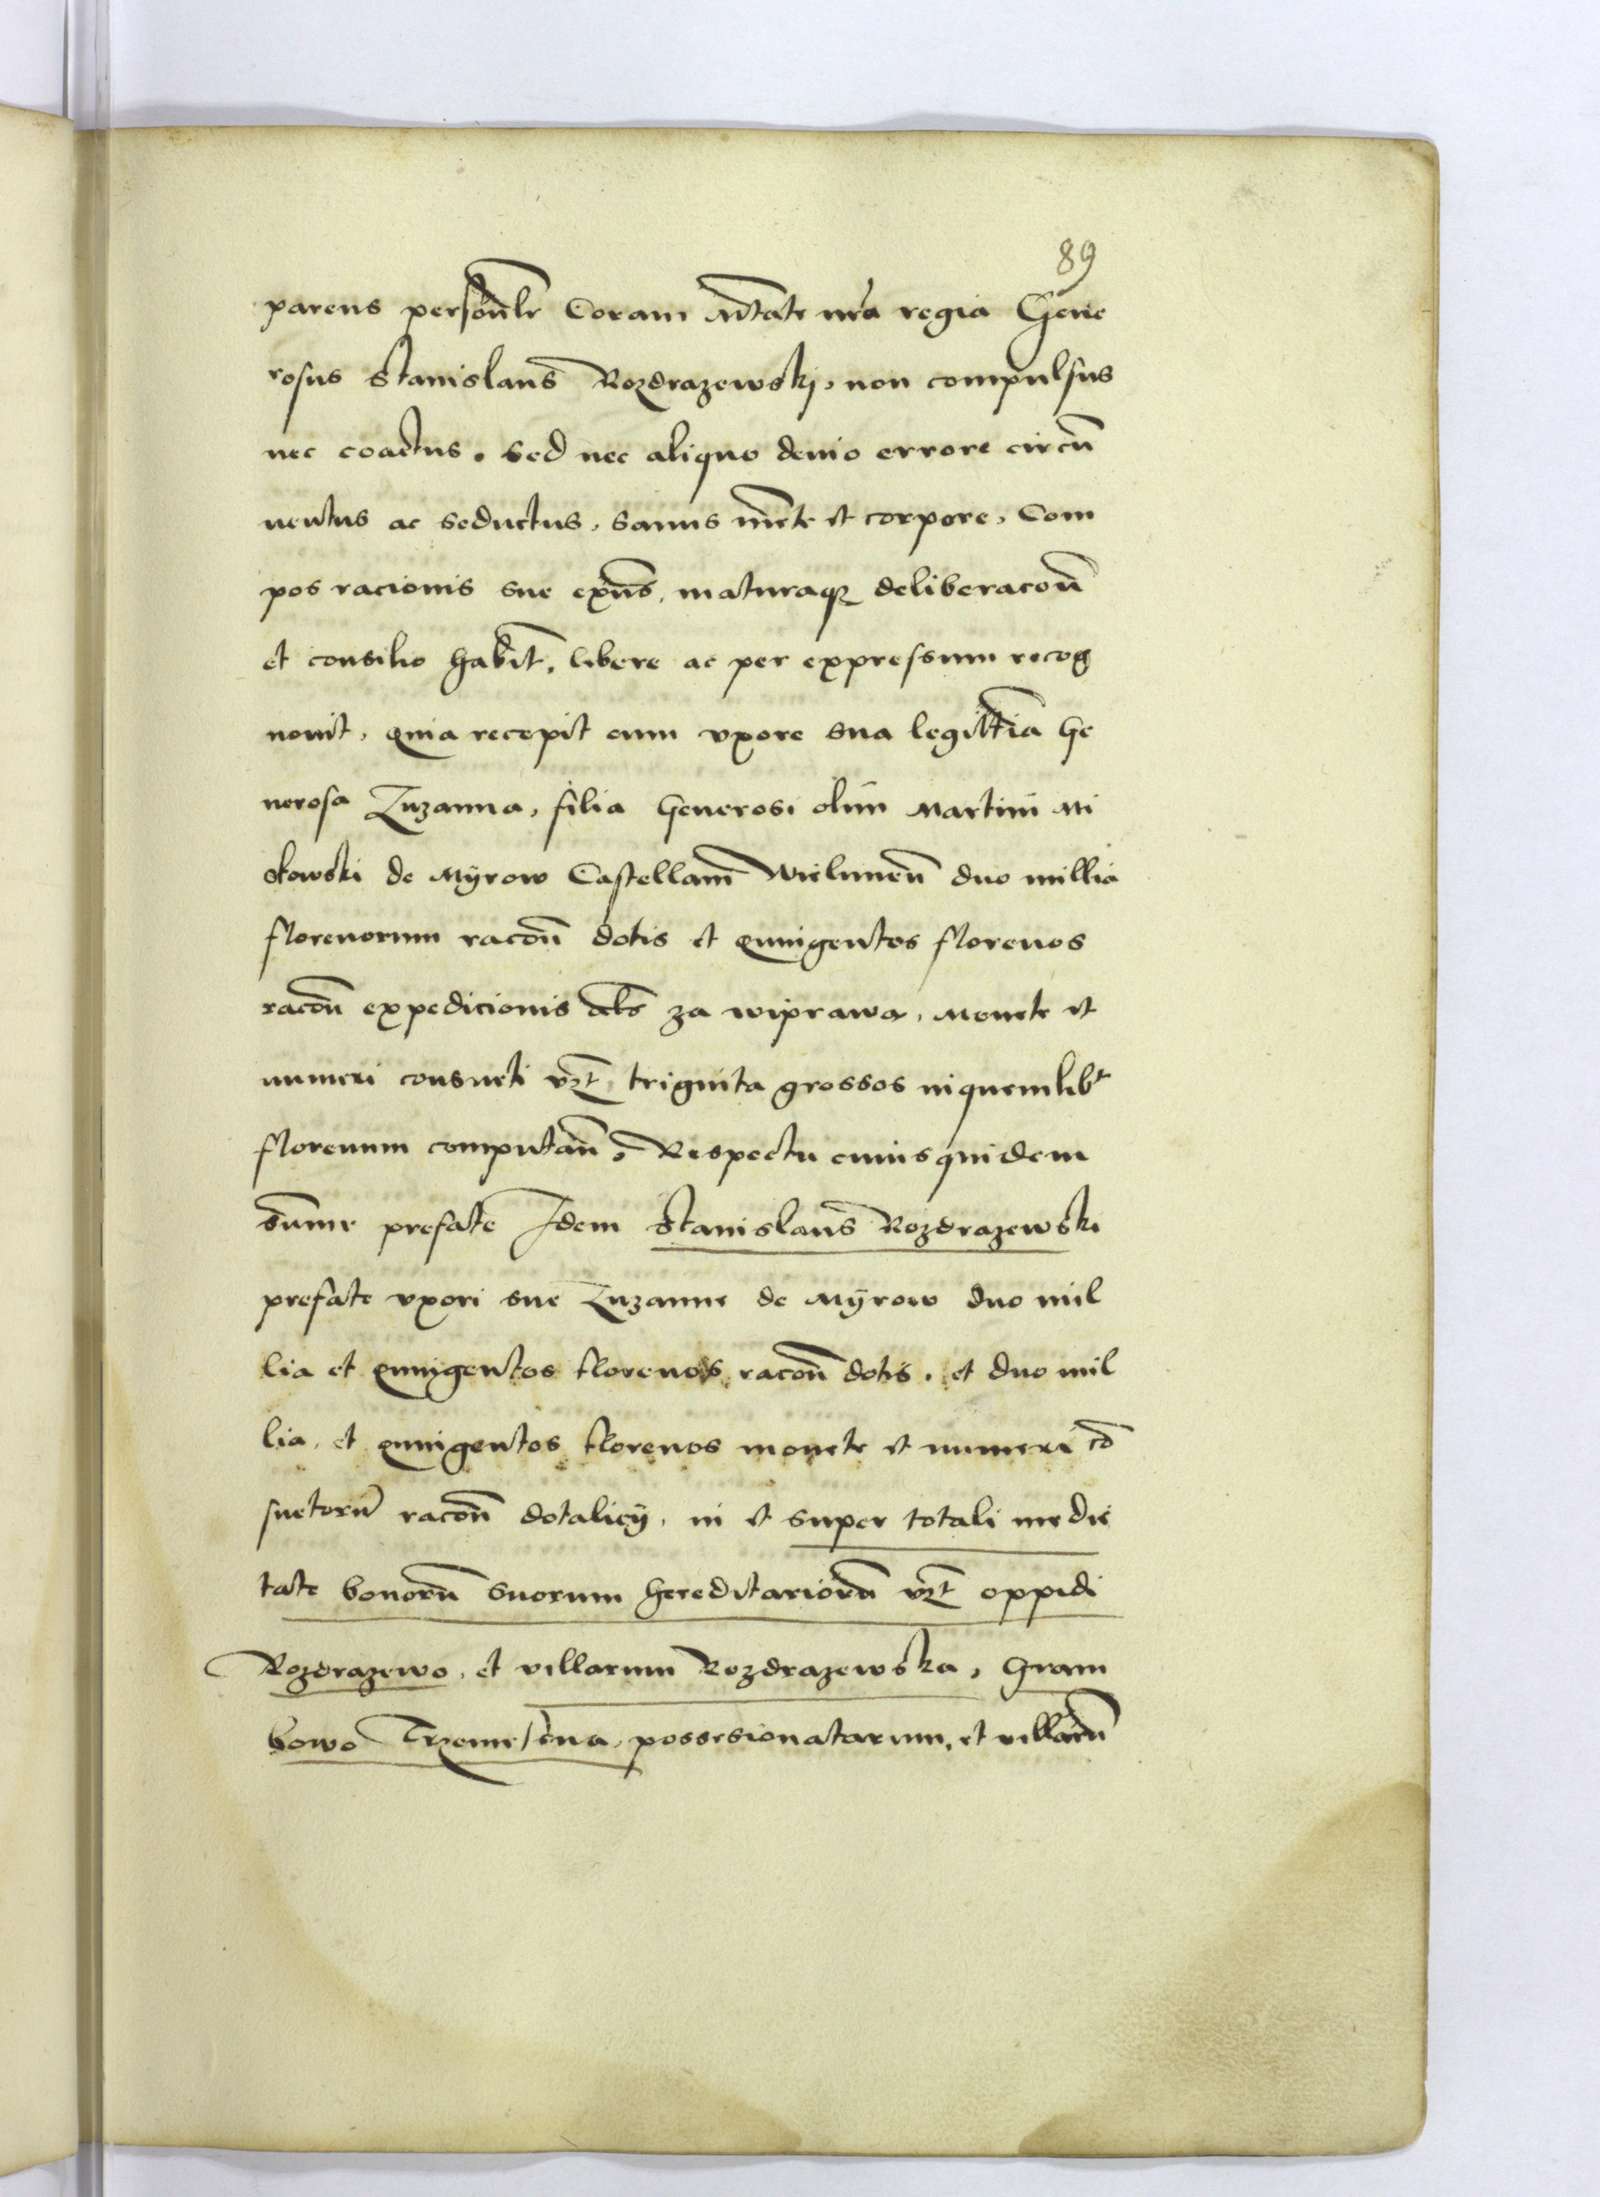 89
parens personlr Coram Mtate nra regia Gene
rosus Stanislaus Rozdrazewskj, non compulsus
nec coactus. sed nec aliquo deuio errore circu
uentus ac seductus, sanus mete et corpore, Com
pos racionis sue exns, maturaque deliberacon
et consilio habit, libere ac per expressum recog
nouit, Quia recepit cum vxore sua legittia Ge
nerosa Zuzanna, filia Generosi olim Martini Mi
skowski de Mÿrow Castellani Wielunen duo millia
florenorum racon dotis et Quingentos florenos
racon expedicionis als za wiprawą, Monete et
numeri consueti vzt, triginta grossos in quemlibt
florenum computan, Respectu cuiusquidem
summe prefate Idem Stanislaus Rozdrazewski
prefate vxori sue Zuzanne de Mÿrow duo mil
lia et Quingentos florenos racon dotis. et duo mil
lia, et Quingentos florenos monete et numeri co
suetoru racon dotalicÿ, in et super totali medie
tate bonoru suorum hereditarioru vzt oppidi
Rozdrazewo, et villarum Rozdrazewska, Gram
bowo possesionatarum, et villaru